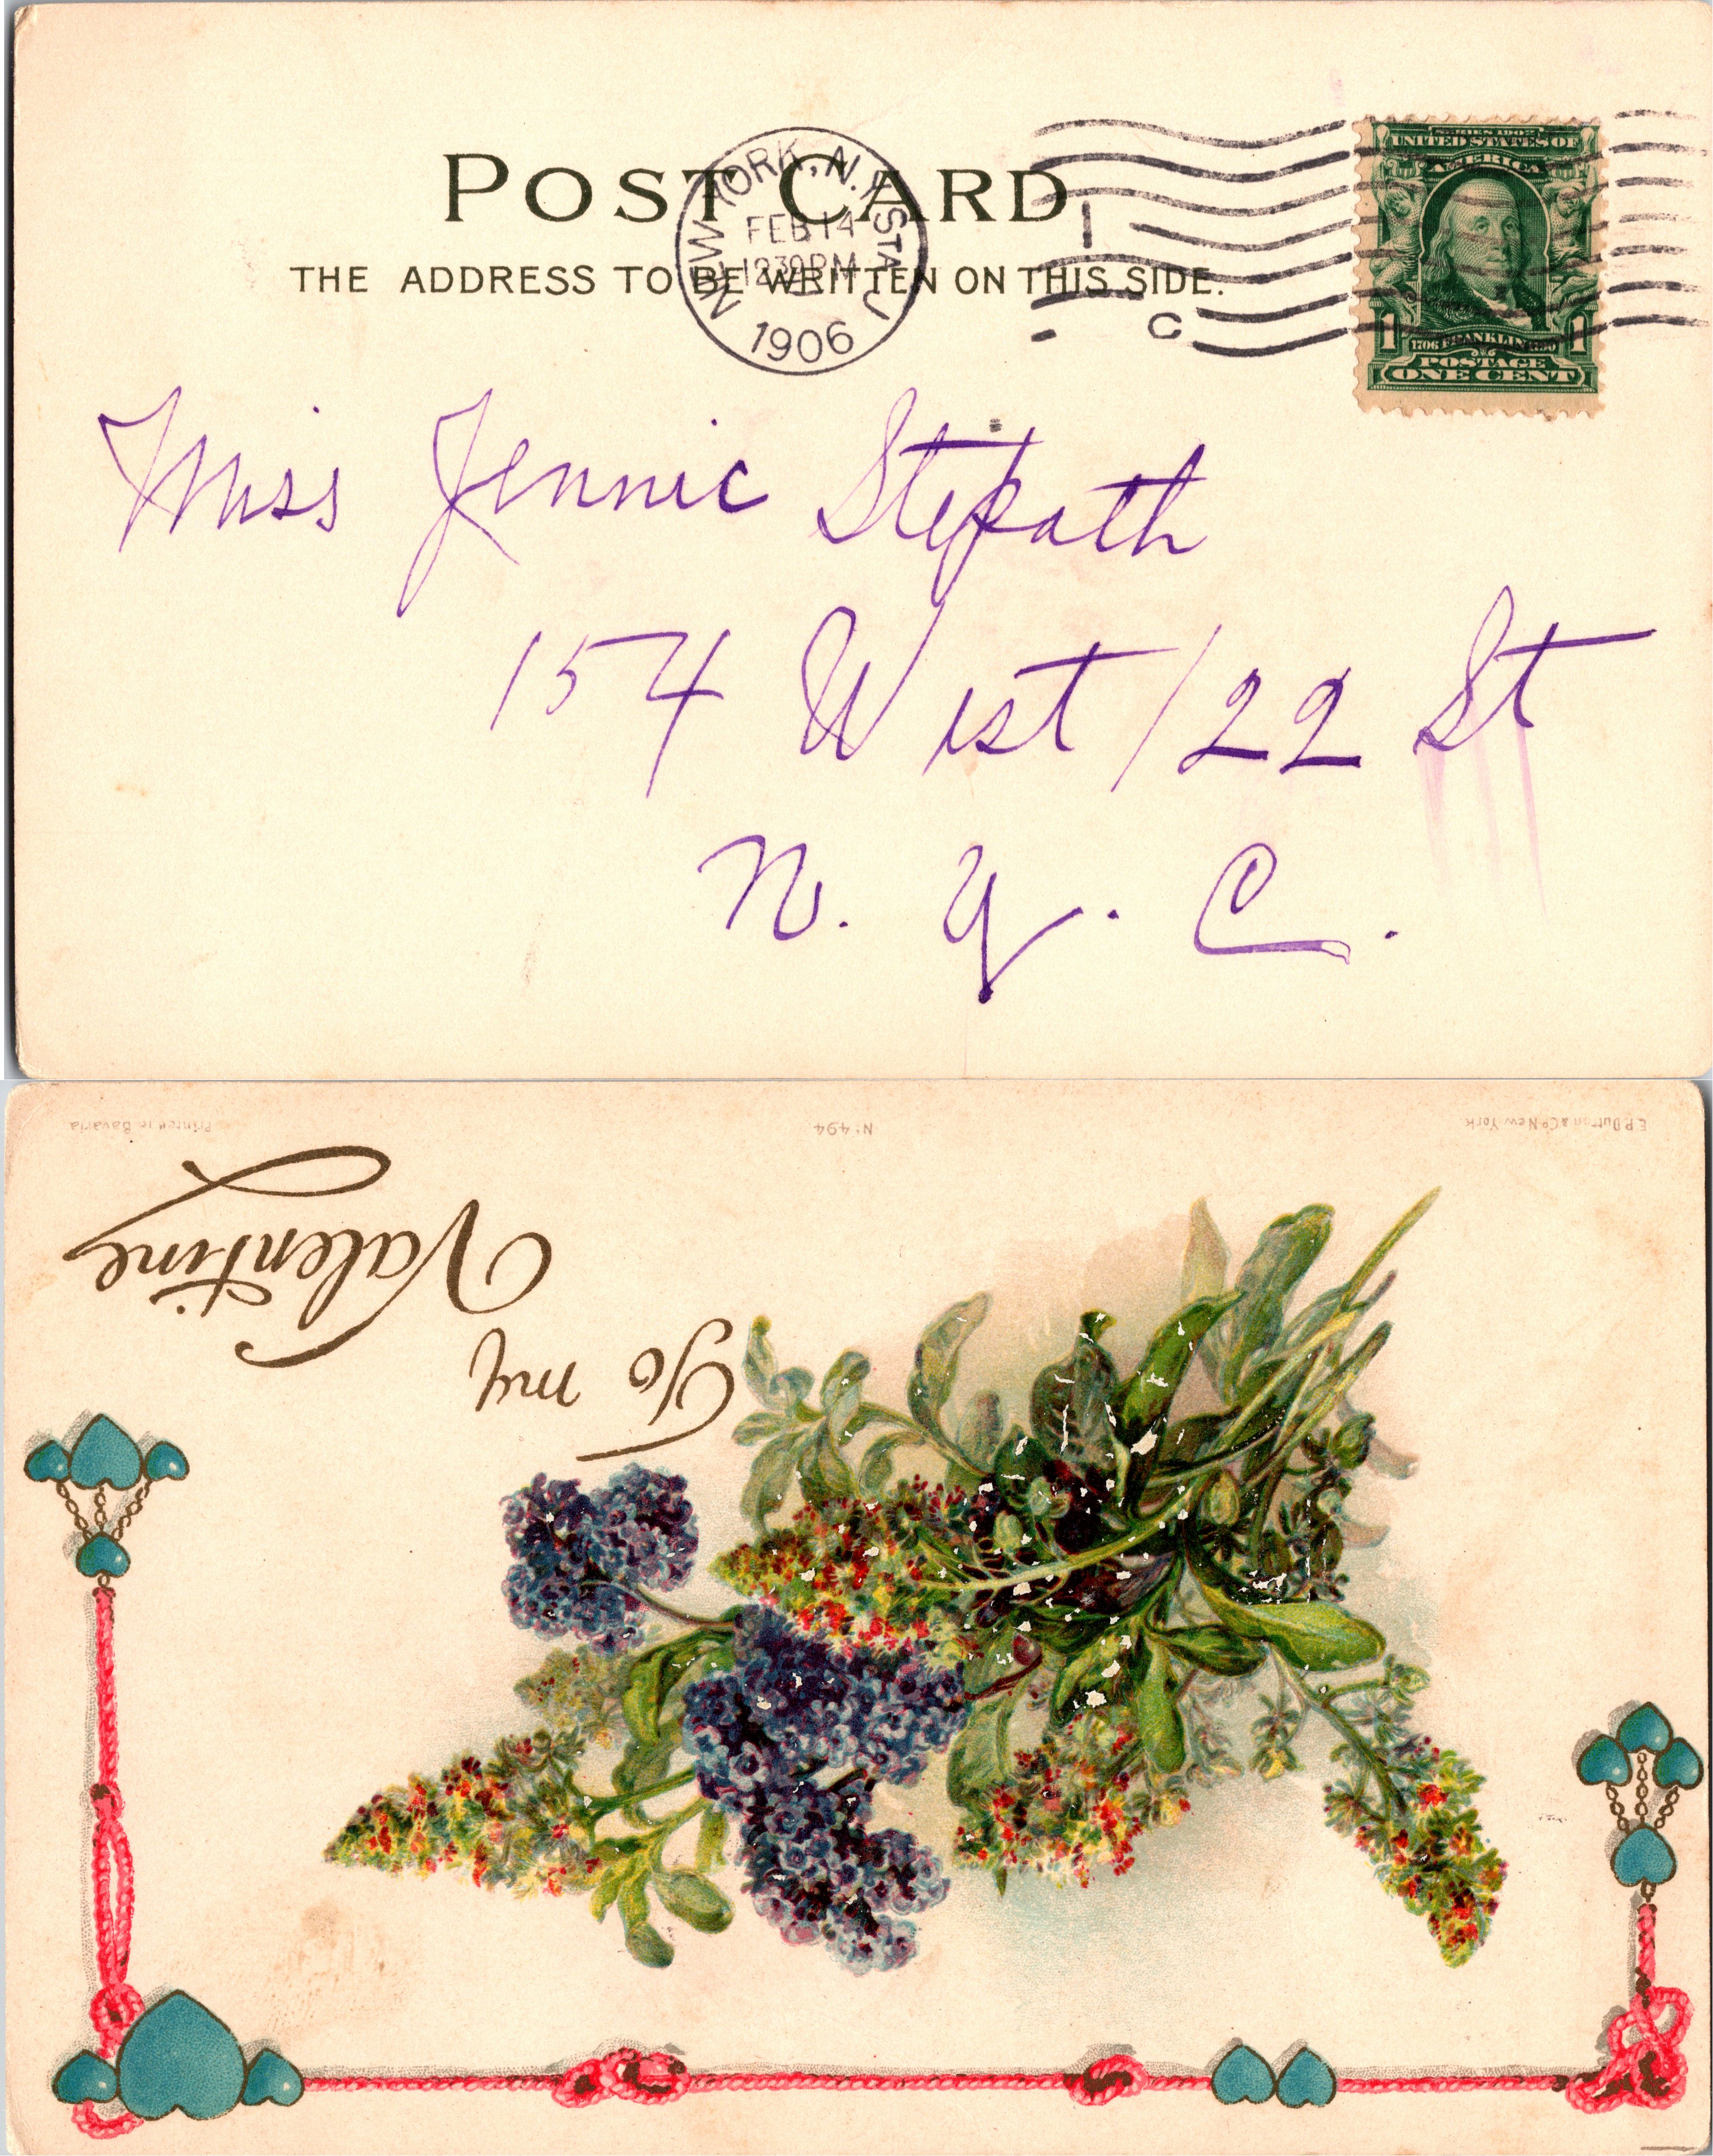 POST CARD
THE ADDRESS TO BE WRITTEN ON THIS SIDE.
NEW YORK, N.Y. STA. J
FEB 14
12 30 PM
1906
1
C
SERIES 1902
UNITED STATES OF
AMERICA
1706 FRANKLIN 1790
POSTAGE
1 1
ONE CENT
Miss Jennie Stepath
154 West 122 St
N. Y. C.
E.P. Dutton & Co New York
No 494
Printed in Bavaria
To my
Valentine